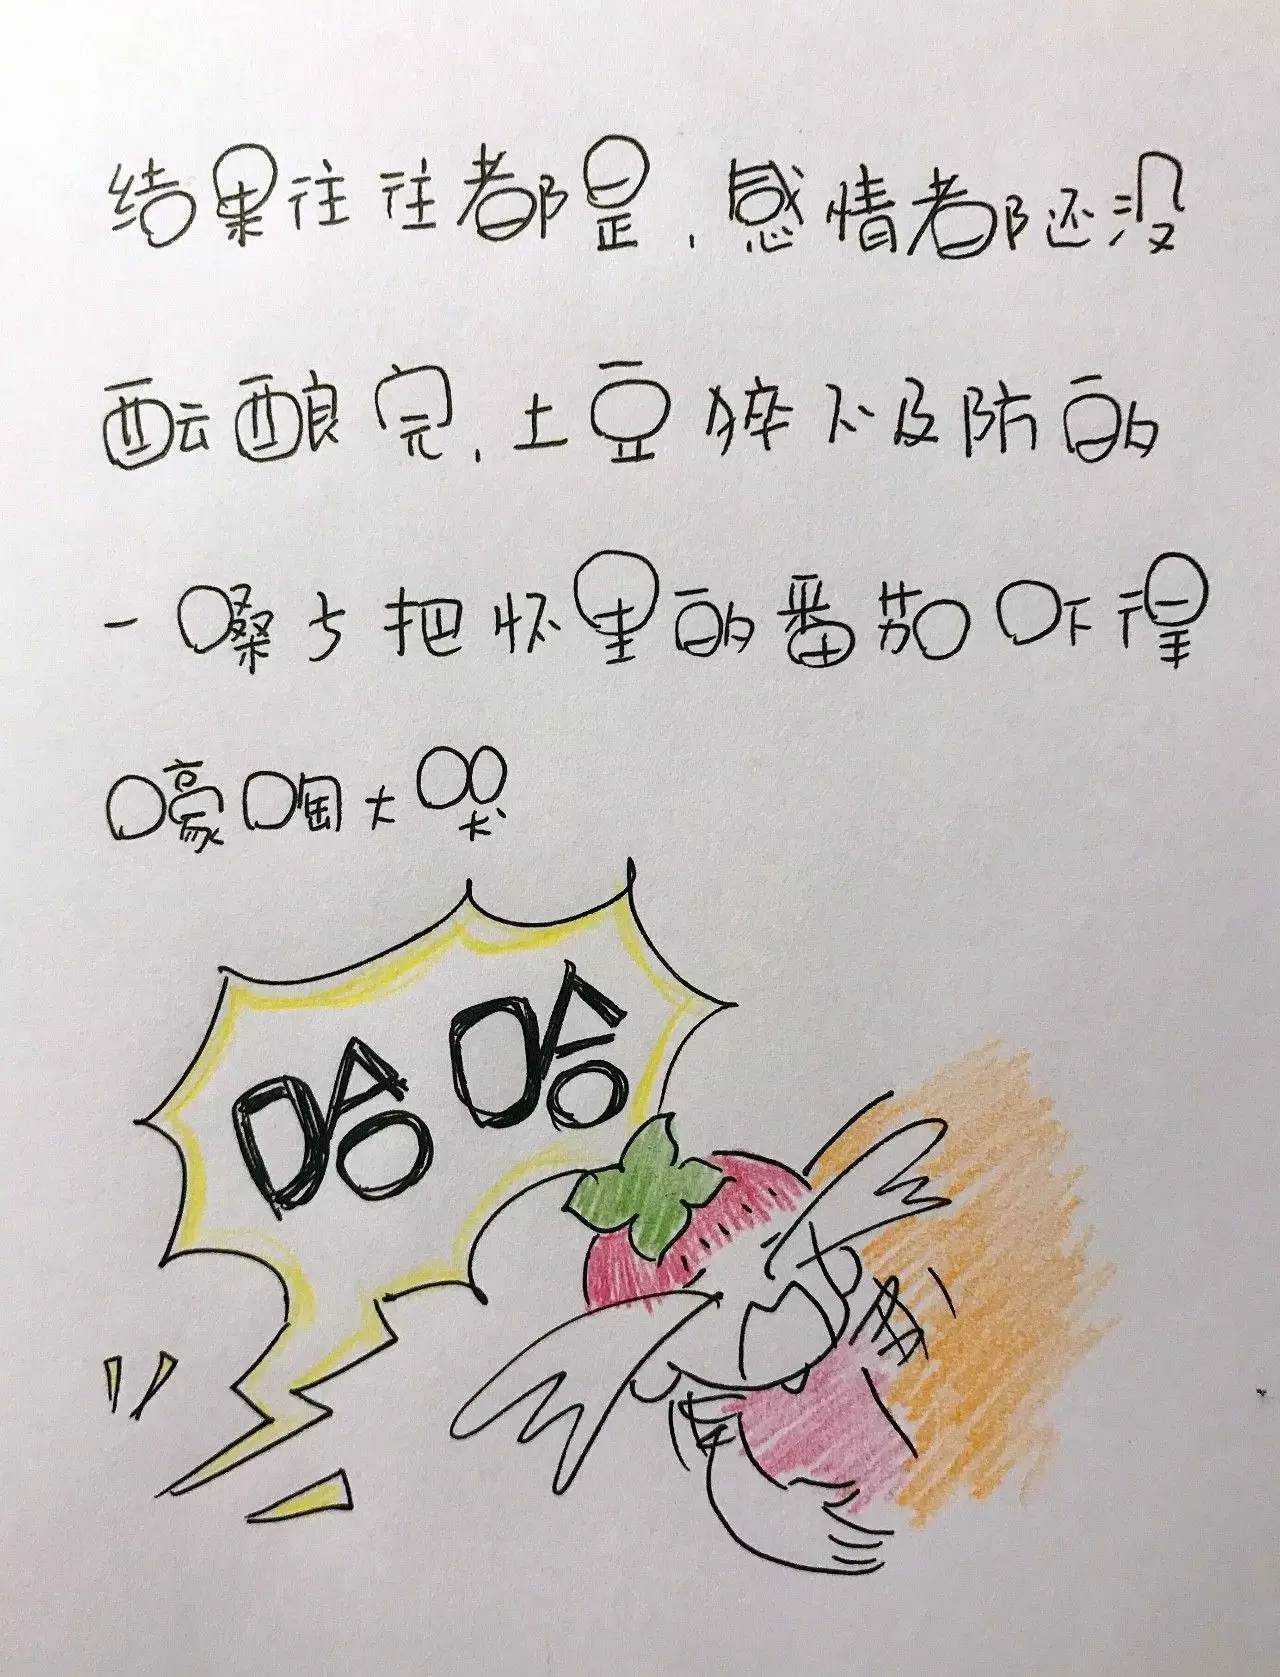 结果往往都是，感情都还没
酝酿完，土豆猝不及防的
一嗓子把怀里的番茄吓得
嚎啕大哭
哈哈